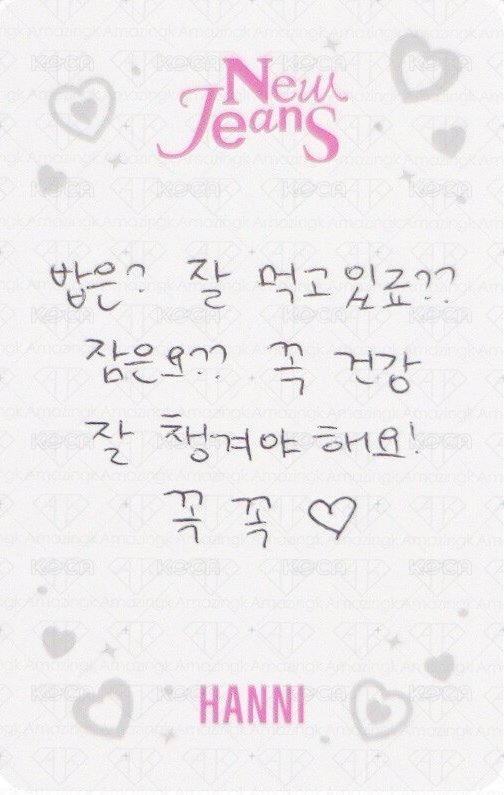 New
Jeans
밥은? 잘 먹고 있죠??
잠은요?? 꼭 건강
잘 챙겨야 해요!
꼭 꼭 ♡
HANNI